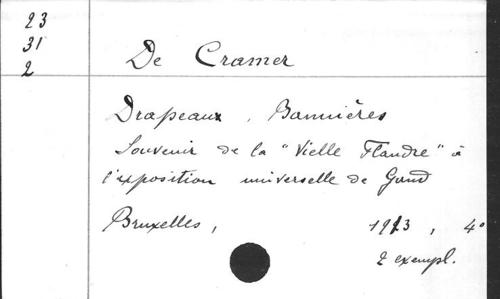 23
31
2
De Cramer
Drapeaux, Bannières
Souvenir de la "Vielle Flandre" à
l'exposition universelle de Gand
Bruxelles, 1913, 4°
2 exempl.